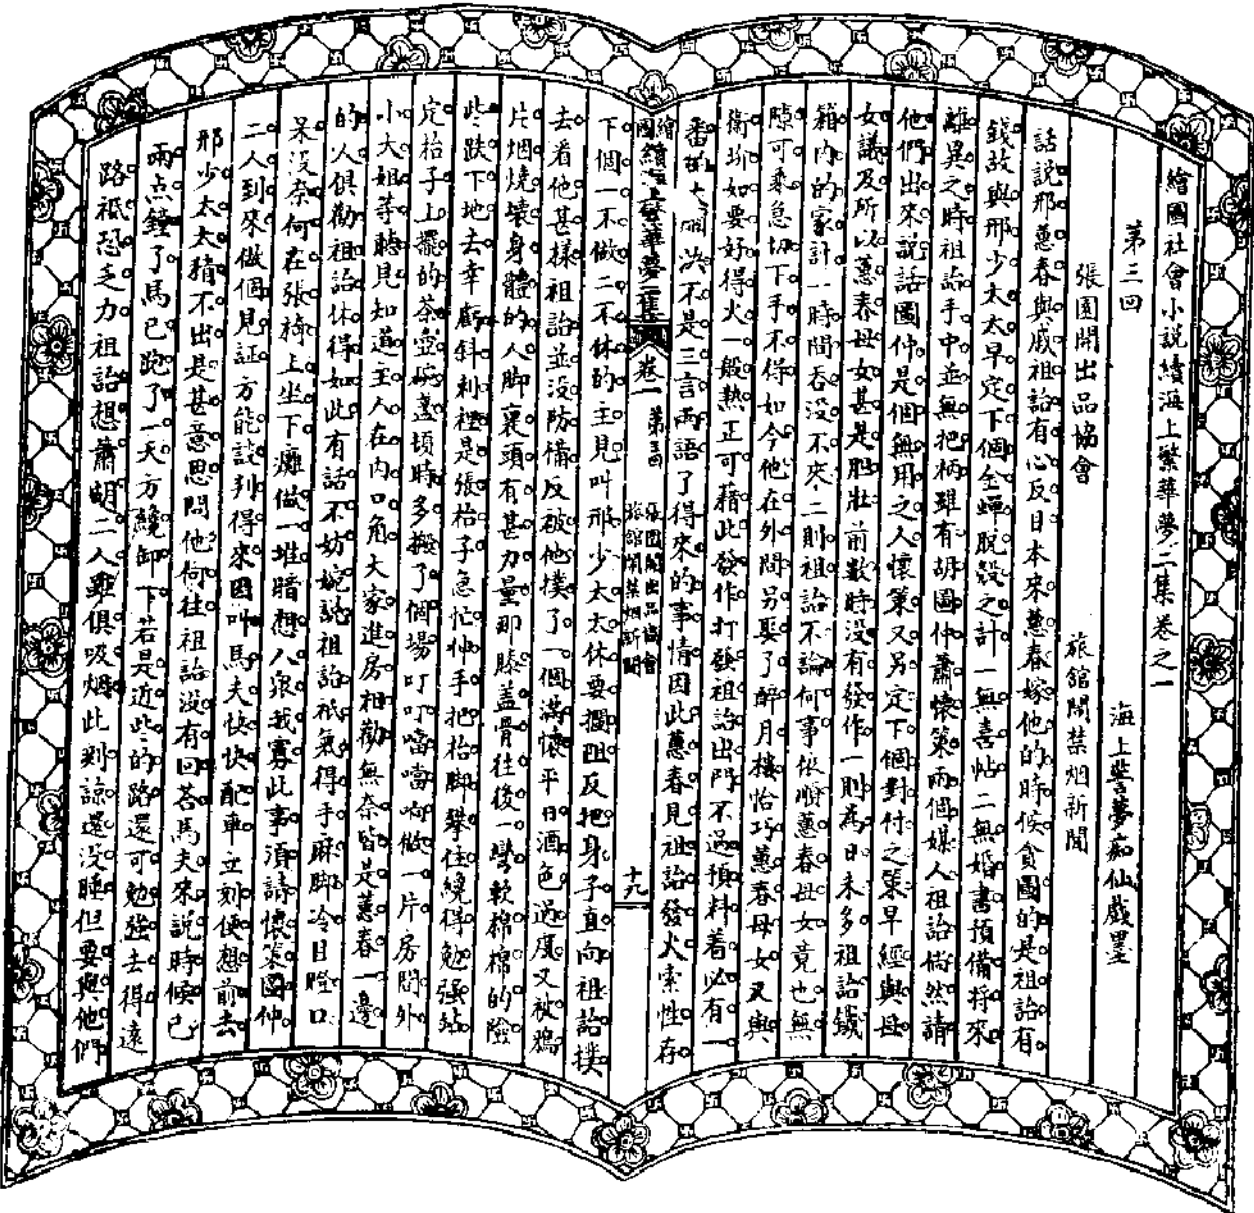 繪圖社會小說續海上繁華夢二集卷之一
海上警夢痴仙戲墨
第三回
張園開出品協會　旅館鬧禁烟新聞
話說邢蕙春與戚祖詒有心反目本來蕙春嫁他的時候貪圖的是祖詒有
錢故與邢少太太早定下個金蟬脫殼之計一無喜帖二無婚書預備將來
離異之時祖詒手中並無把柄雖有胡圖仲蕭懷策兩個媒人祖詒倘然請
他們出來說話圖仲是個無用之人懷策又另定下個對付之策早經與母
女議及所以蕙春母女甚是胆壯前數時沒有發作一則為日未多祖詒鐵
箱內的家計一時間吞沒不來二則祖詒不論何事依順蕙春母女竟也無
隙可乘急切下手不得如今他在外間另娶了醉月樓恰巧蕙春母女又與
衛玠如要好得火一般熱正可藉此發作打發祖詒出門不過預料着必有一
番大鬧決不是三言兩語了得來的事情因此蕙春見祖詒發火索性存
繪圖續海上繁華夢二集　卷一　第三回　張園開出品協會　旅館鬧禁烟新聞　十九
下個一不做二不休的主見叫邢少太太休要攔阻反把身子直向祖詒撲
去看他甚樣祖詒並沒防備反被他撲了一個滿懷平日酒色過度又被鴉
片烟燒壞身體的人脚裏頭有甚力量那膝蓋骨往後一彎軟棉棉的險
些跌下地去幸虧斜刺裡是張枱子急忙伸手把枱脚攀住纔得勉強站
定枱子上擺的茶壺碗盞頃時多搬了個場叮叮噹噹响做一片房間外
小大姐等聽見知道主人在內口角大家進房相勸無奈皆是蕙春一邊
的人俱勸祖詒休得如此有話不妨婉說祖詒祇氣得手麻脚冷目瞪口
呆沒奈何在張椅上坐下癱做一堆暗想人衆我寡此事須請懷策圖仲
二人到來做個見証方能談判得來因叫馬夫快快配車立刻便想前去
邢少太太猜不出是甚意思問他何往祖詒沒有回荅馬夫來說時候已
兩点鐘了馬已跑了一天方纔卸下若是近些的路還可勉強去得遠
路祇恐乏力祖詒想蕭胡二人雖俱吸烟此刻諒還沒睡但要與他們